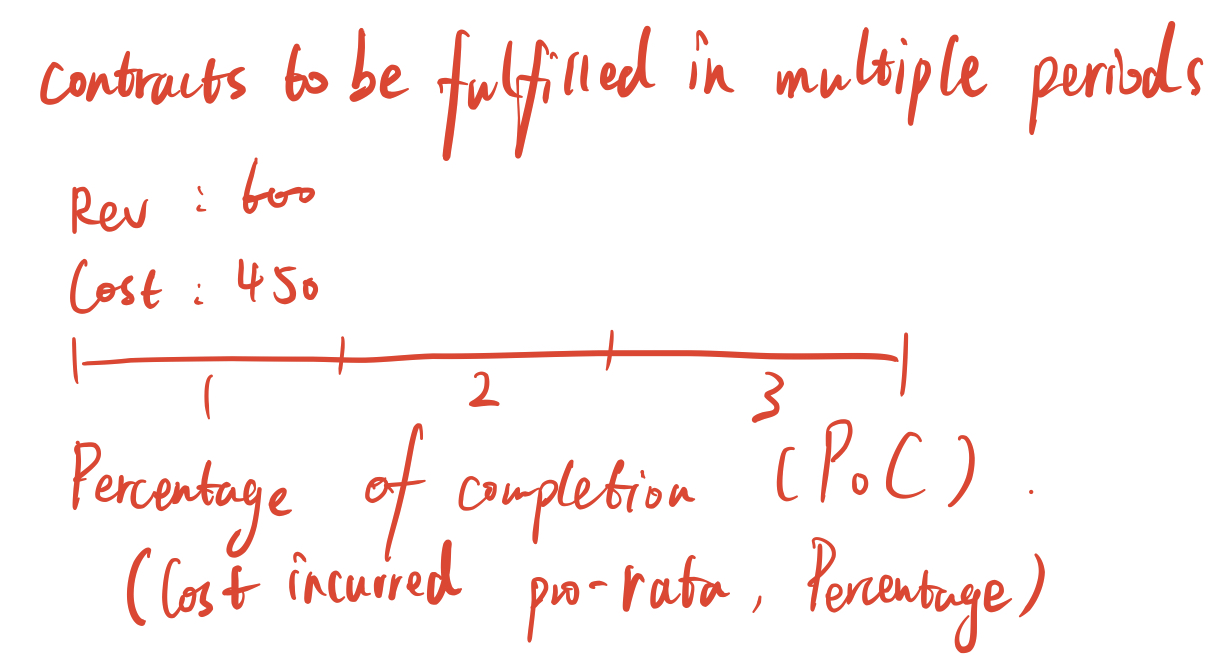 contracts to be fulfilled in multiple periods
Rev : 600
Cost : 450
1 2 3
Percentage of completion (PoC).
(Cost incurred pro-rata, Percentage)